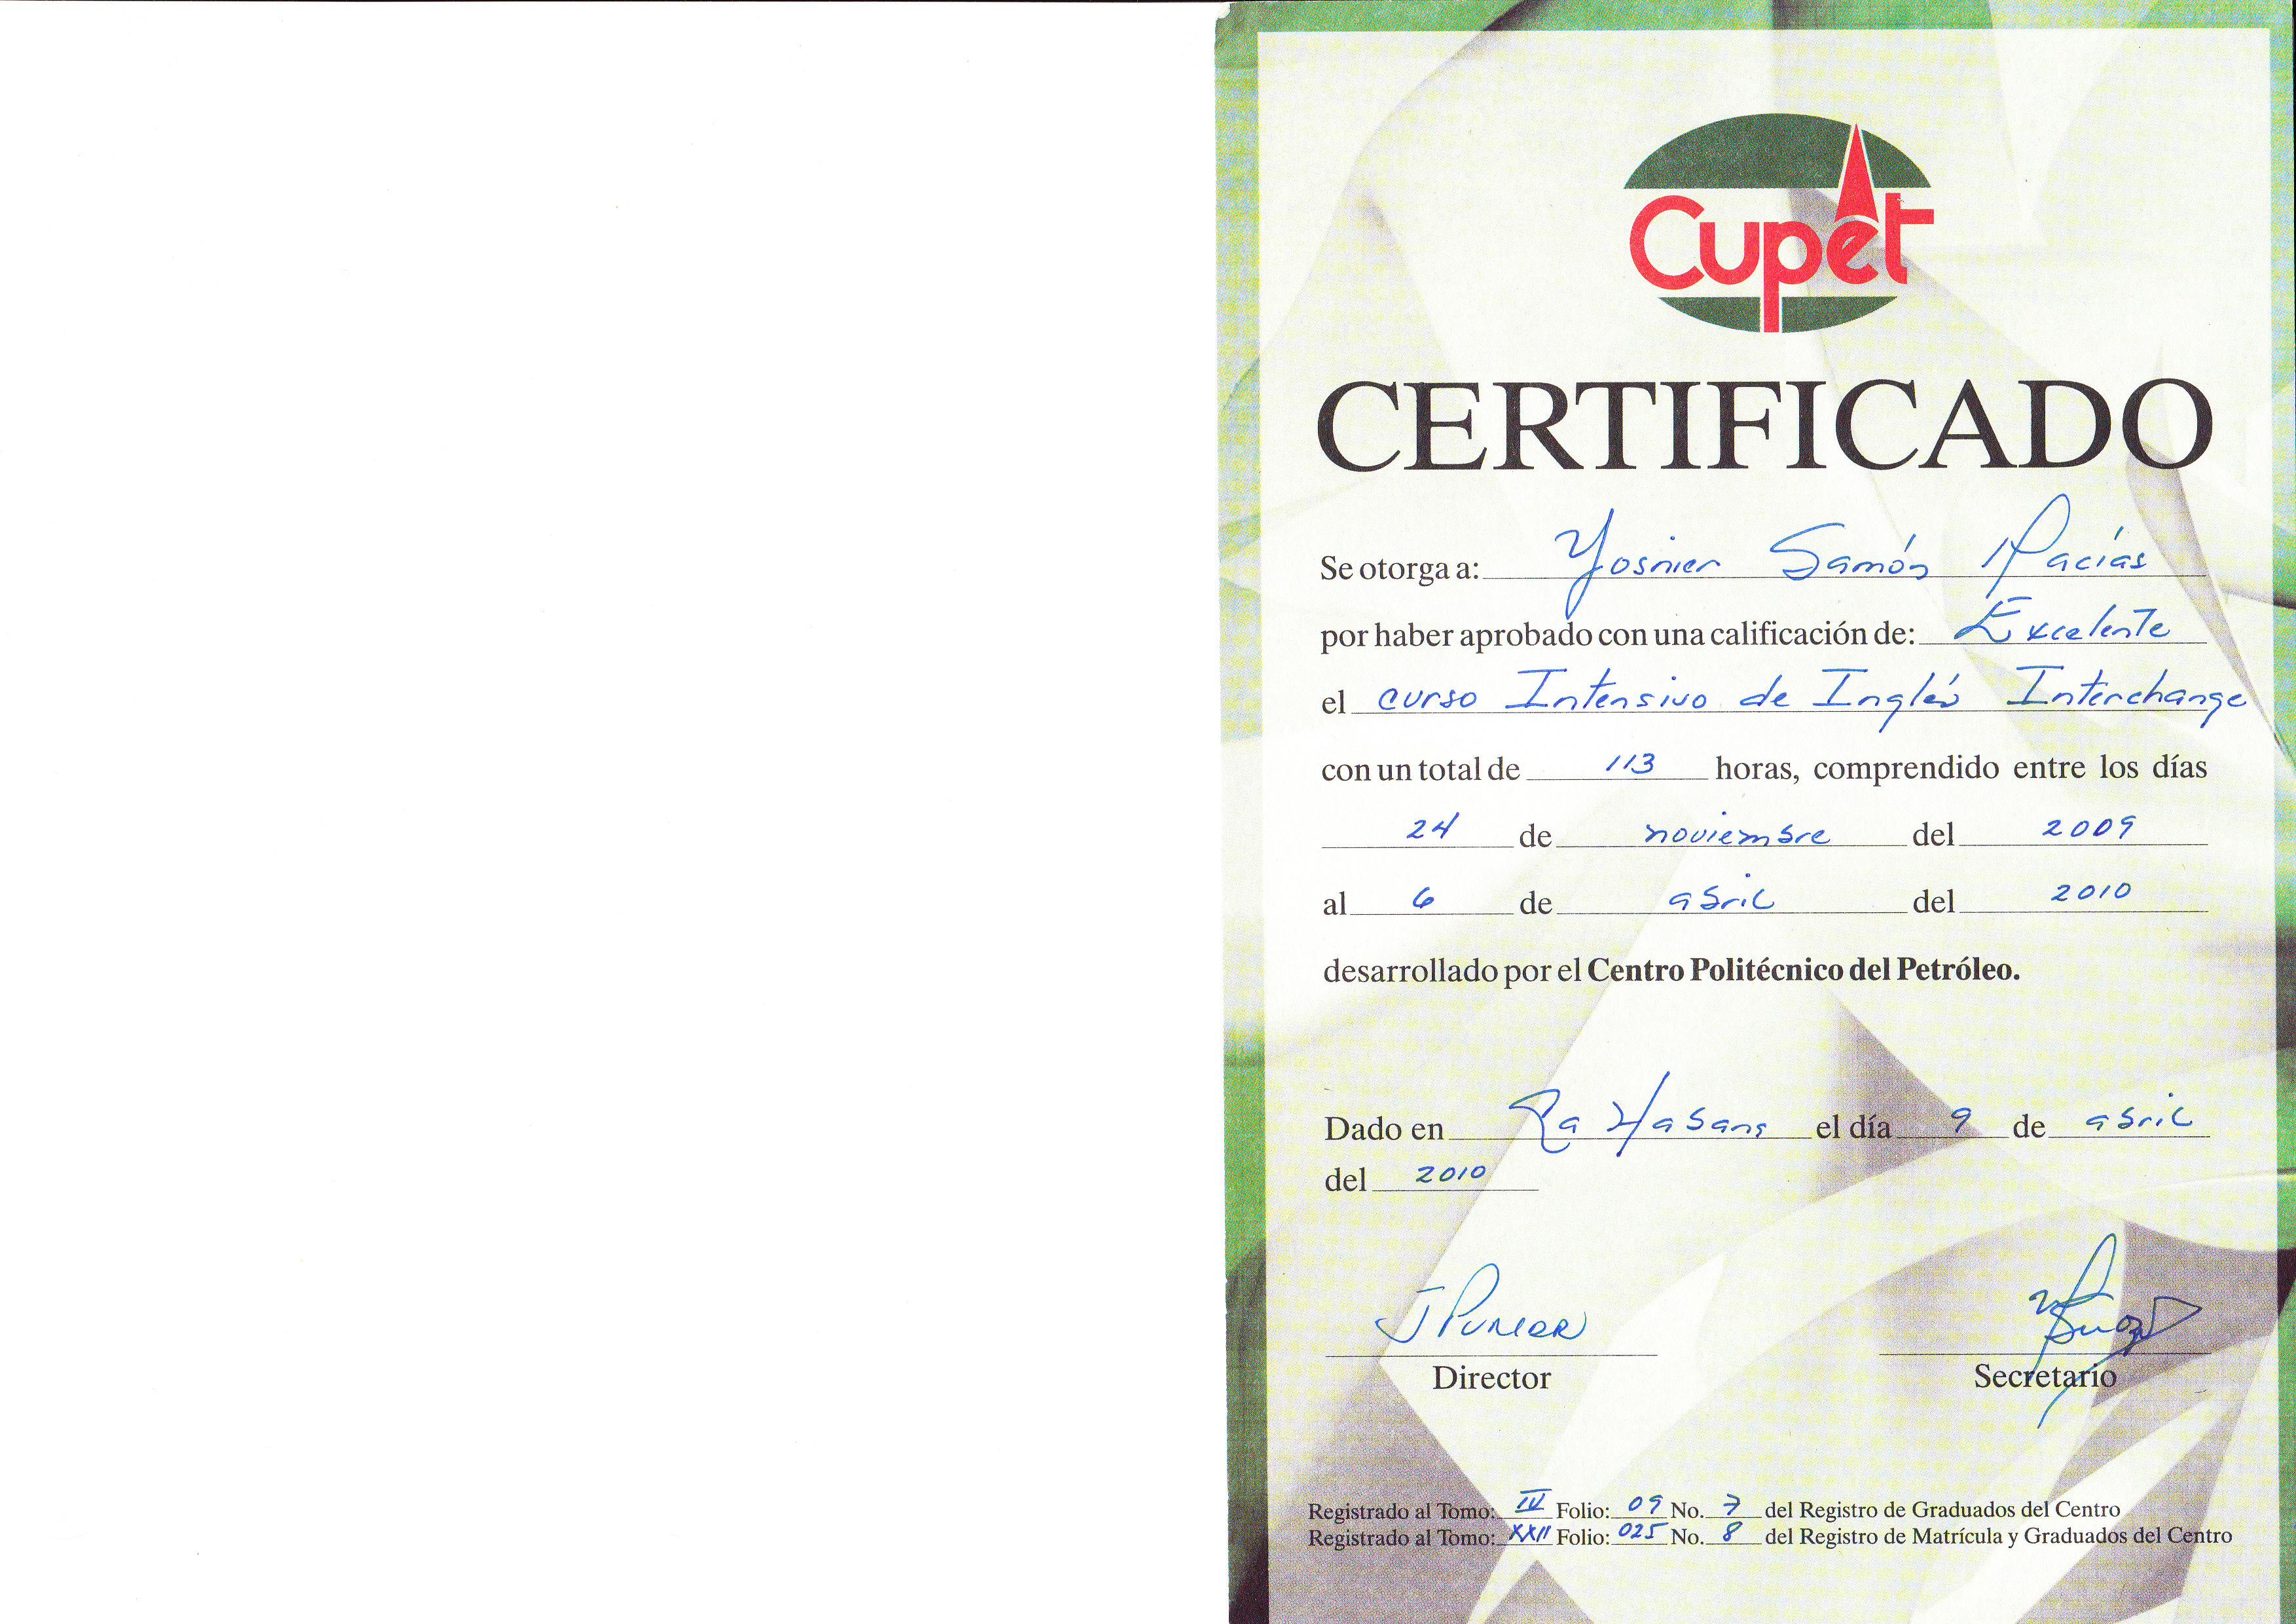 Cupet
CERTIFICADO
Se otorga a: Yosnier Samón Macías
por haber aprobado con una calificación de: Excelente
el curso Intensivo de Inglés Interchange
con un total de 113 horas, comprendido entre los días
24 de noviembre del 2009
al 6 de abril del 2010
desarrollado por el Centro Politécnico del Petróleo.
Dado en La Habana el día 9 de abril
del 2010
Director
Secretario
Registrado al Tomo: IV Folio: 09 No. 7 del Registro de Graduados del Centro
Registrado al Tomo: XXII Folio: 025 No. 8 del Registro de Matrícula y Graduados del Centro